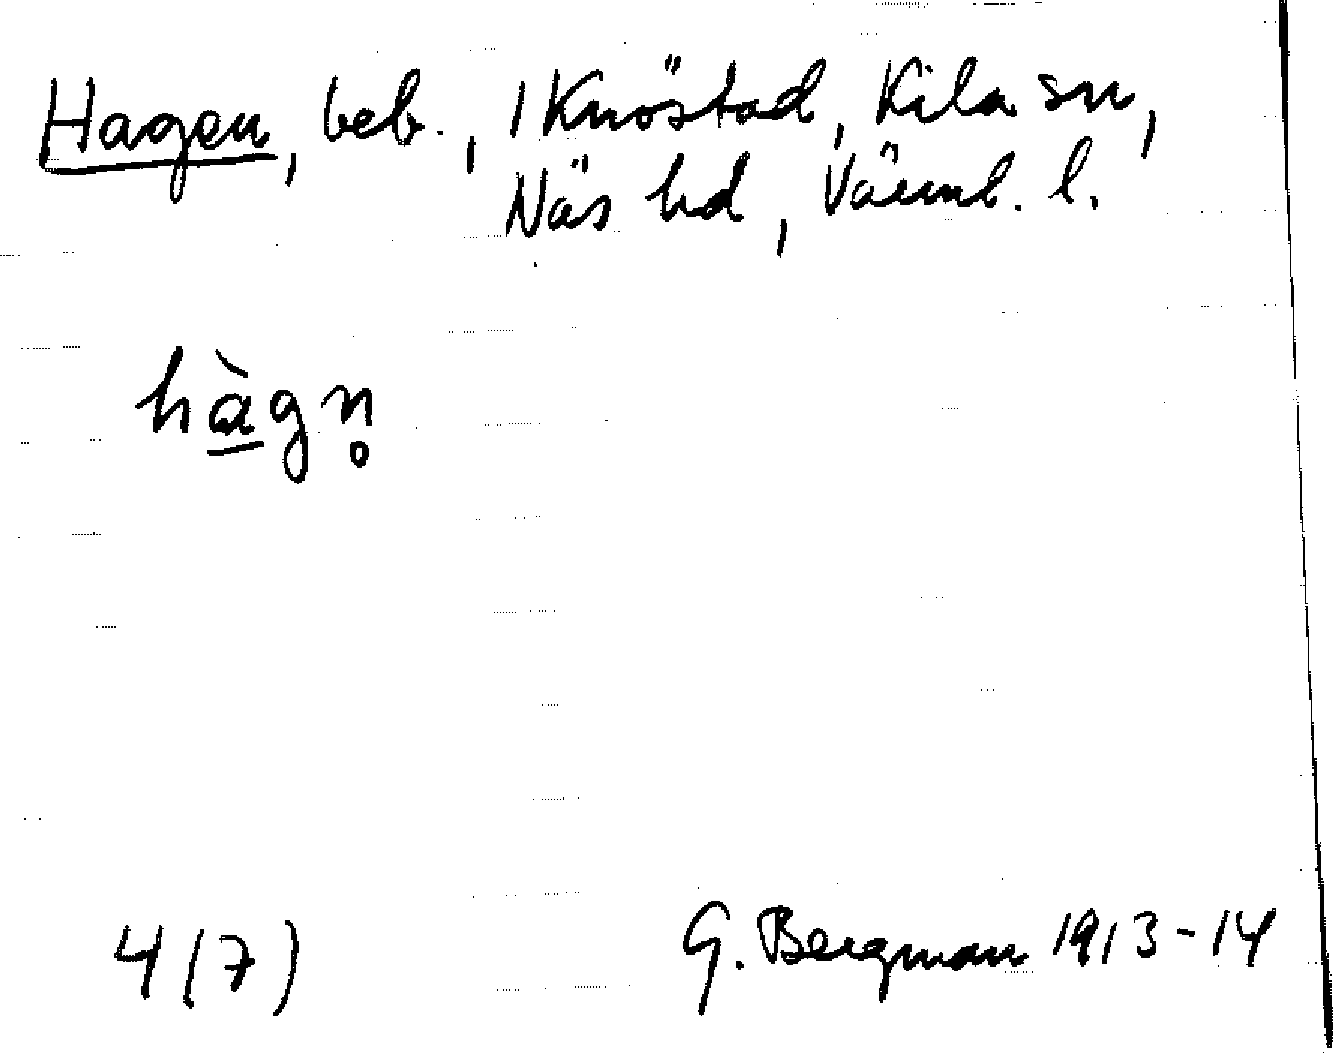 Hagen, beb., 1 Knöstad, Kila sn,
Näs hd, Värml. l.
hàgn̥
4(7) G. Bergman 1913-14